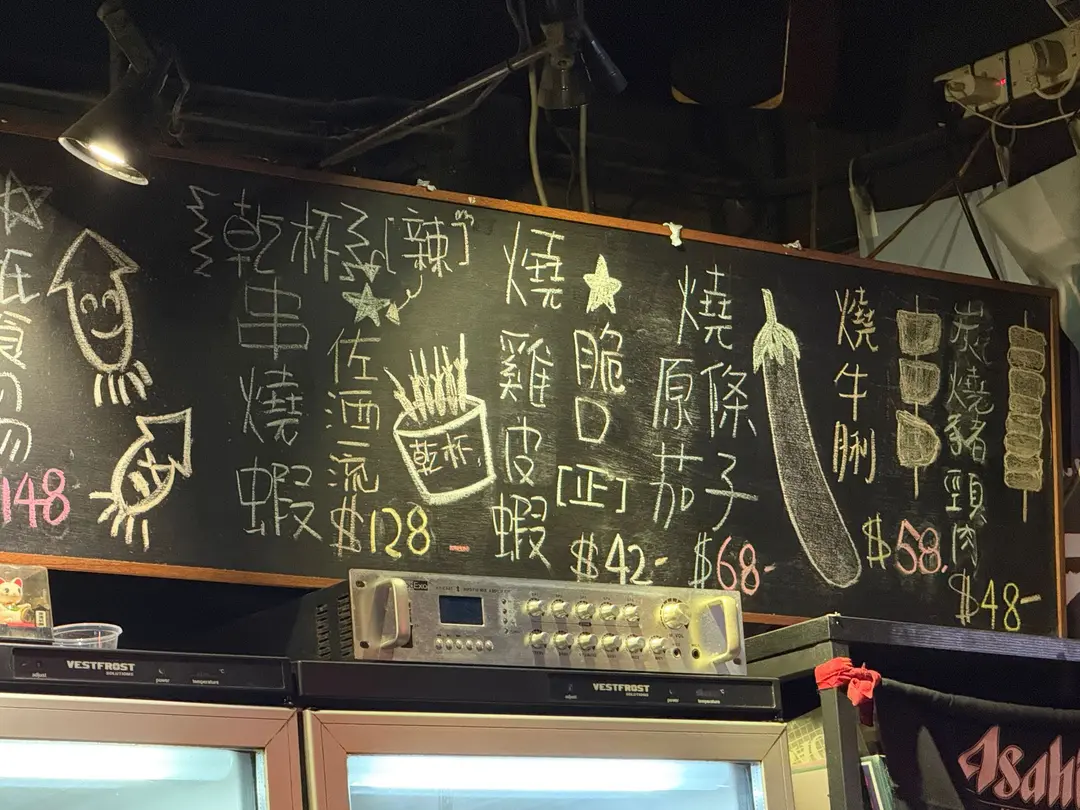 食
148
乾杯
[辣]
串燒蝦
佐酒一流
$128
乾杯
燒雞皮蝦
脆口
[正]
$42-
燒原條茄子
$68-
燒牛脷
$58.
炭燒豬頸肉
$48-
VESTFROST
SOLUTIONS
adjust
power
temperature
VESTFROST
SOLUTIONS
adjust
power
temperature
Asahi